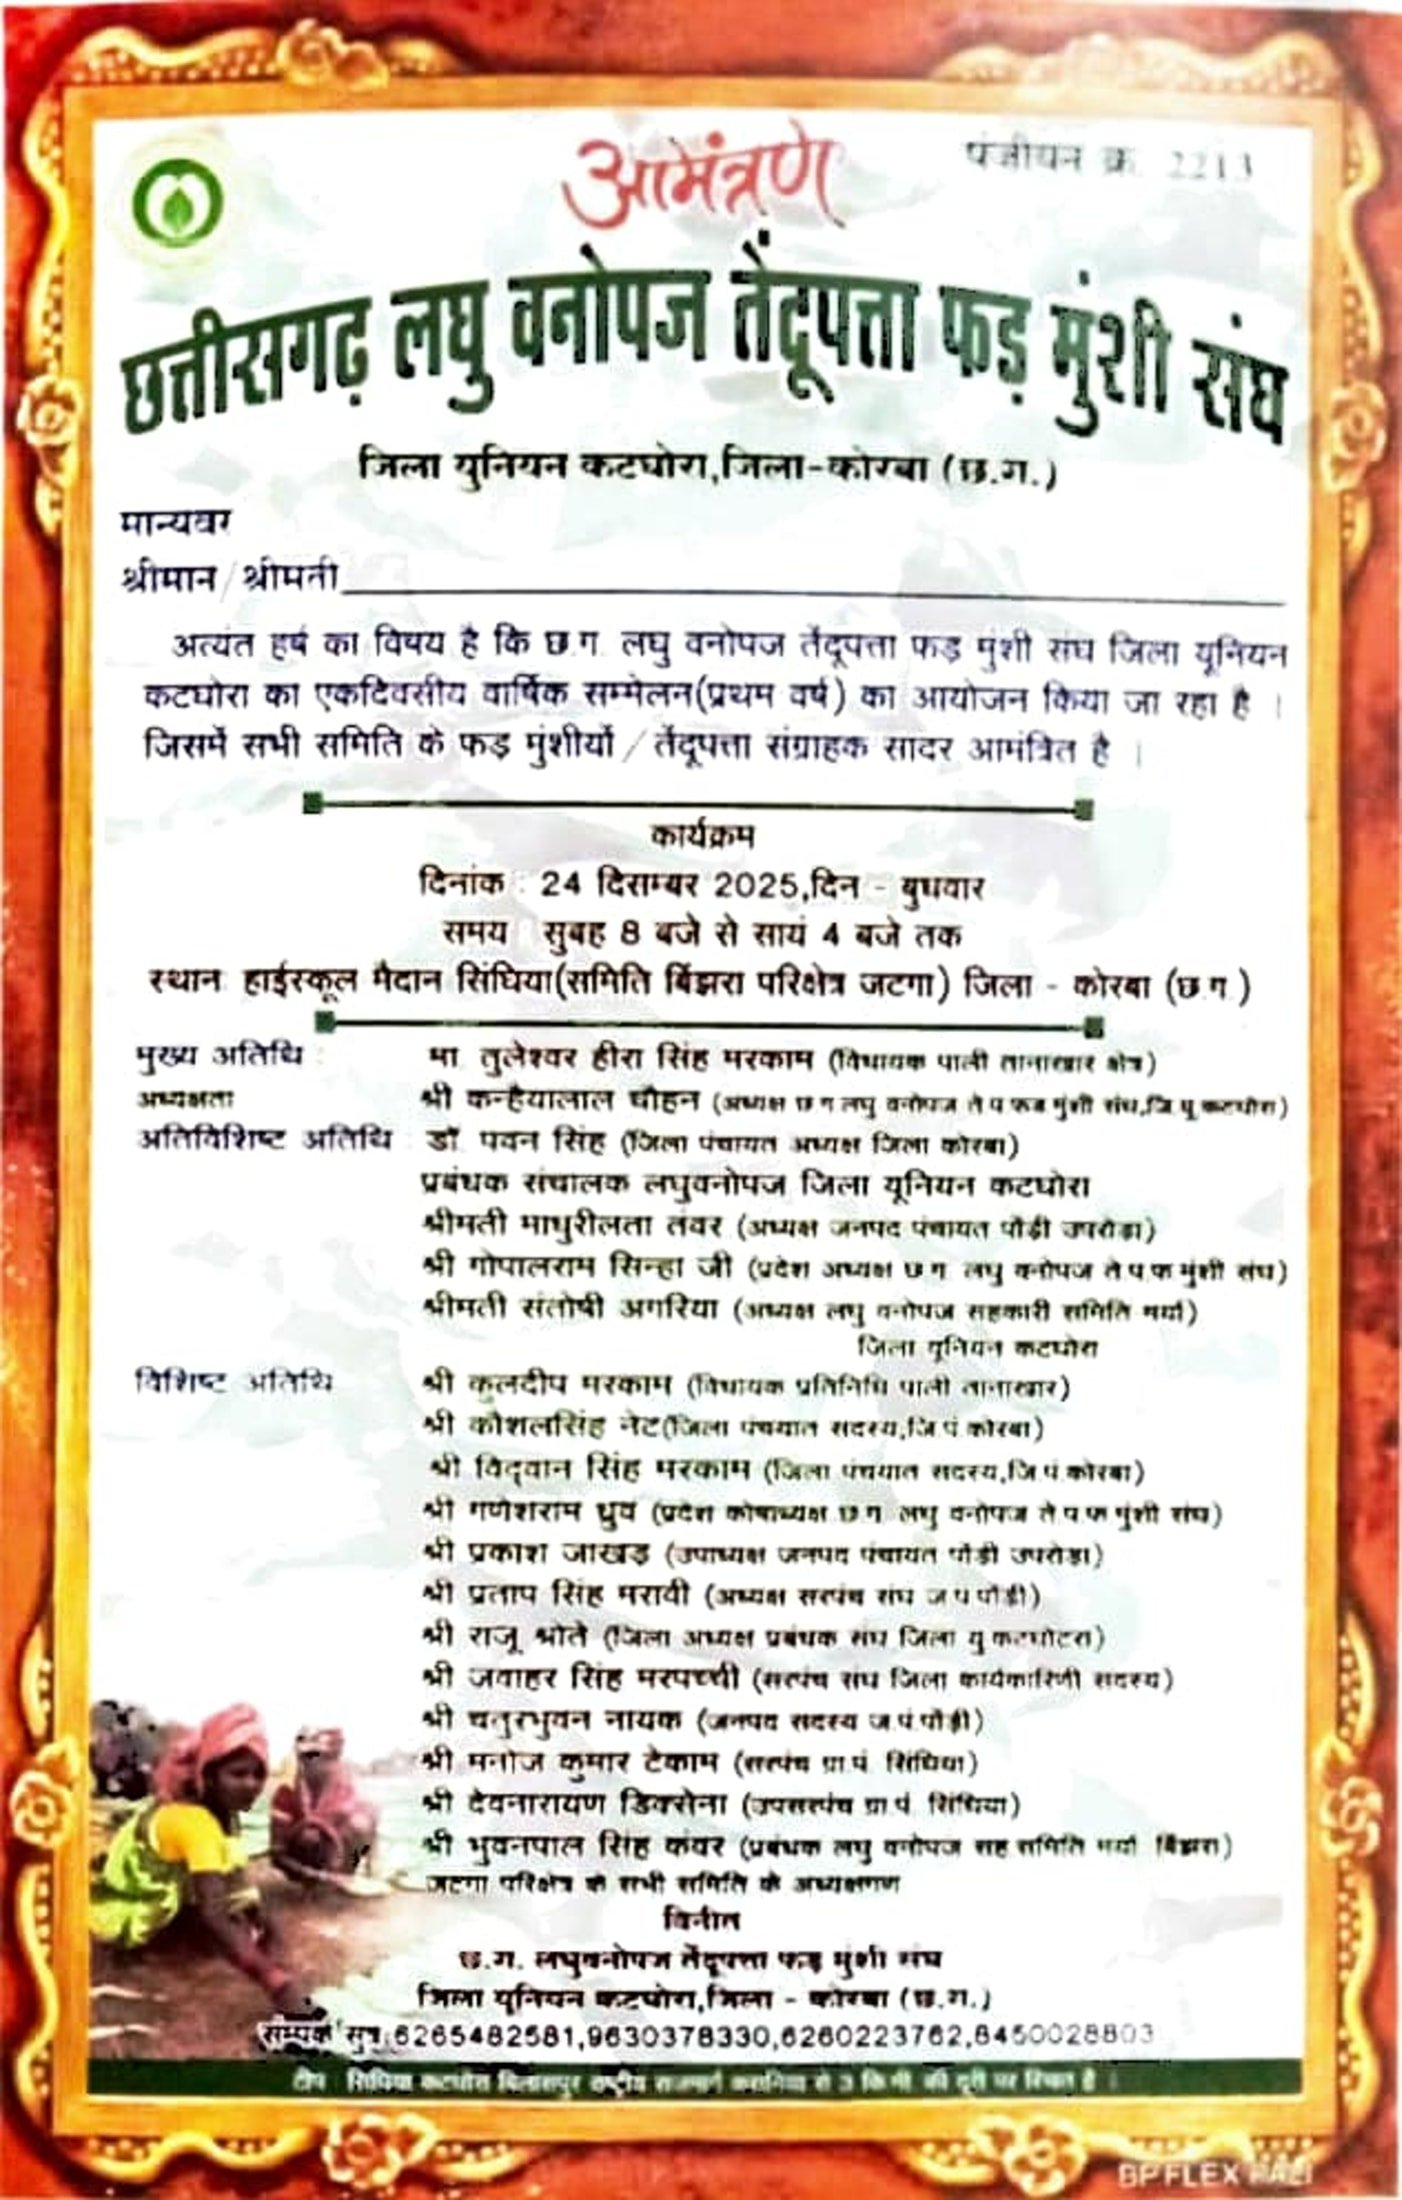 आमंत्रण
पंजीयन क्र. 2213
छत्तीसगढ़ लघु वनोपज तेंदूपत्ता फड़ मुंशी संघ
जिला युनियन कटघोरा,जिला-कोरबा (छ.ग.)
मान्यवर
श्रीमान / श्रीमती
अत्यंत हर्ष का विषय है कि छ.ग. लघु वनोपज तेंदूपत्ता फड़ मुंशी संघ जिला यूनियन
कटघोरा का एकदिवसीय वार्षिक सम्मेलन(प्रथम वर्ष) का आयोजन किया जा रहा है ।
जिसमें सभी समिति के फड़ मुंशीयों / तेंदूपत्ता संग्राहक सादर आमंत्रित है ।
कार्यक्रम
दिनांक : 24 दिसम्बर 2025,दिन - बुधवार
समय : सुबह 8 बजे से सायं 4 बजे तक
स्थान हाईस्कूल मैदान सिंघिया(समिति बिंझरा परिक्षेत्र जटगा) जिला - कोरबा (छ.ग.)
मुख्य अतिथि : मा. तुलेश्वर हीरा सिंह मरकाम (विधायक पाली तानाखार क्षेत्र)
अध्यक्षता श्री कन्हैयालाल चौहन (अध्यक्ष छ.ग.लघु वनोपज ते.प.फड़ मुंशी संघ,जि.यू.कटघोरा)
अतिविशिष्ट अतिथि : डॉ. पवन सिंह (जिला पंचायत अध्यक्ष जिला कोरबा)
प्रबंधक संचालक लघुवनोपज जिला यूनियन कटघोरा
श्रीमती माधुरीलता तंवर (अध्यक्ष जनपद पंचायत पोंड़ी उपरोड़ा)
श्री गोपालराम सिन्हा जी (प्रदेश अध्यक्ष छ.ग. लघु वनोपज ते.प.फ.मुंशी संघ)
श्रीमती संतोषी अगरिया (अध्यक्ष लघु वनोपज सहकारी समिति मर्या)
जिला यूनियन कटघोरा
विशिष्ट अतिथि श्री कुलदीप मरकाम (विधायक प्रतिनिधि पाली तानाखार)
श्री कौशलसिंह नेट(जिला पंचयात सदस्य,जि.पं.कोरबा)
श्री विद्वान सिंह मरकाम (जिला पंचयात सदस्य,जि.पं.कोरबा)
श्री गणेशराम ध्रुव (प्रदेश कोषाध्यक्ष छ.ग. लघु वनोपज ते.प.फ.मुंशी संघ)
श्री प्रकाश जाखड़ (उपाध्यक्ष जनपद पंचायत पोंड़ी उपरोड़ा)
श्री प्रताप सिंह मरावी (अध्यक्ष सरपंच संघ ज.प.पोंड़ी)
श्री राजू श्रोते (जिला अध्यक्ष प्रबंधक संघ जिला यु.कटघोटरा)
श्री जवाहर सिंह मरपच्ची (सरपंच संघ जिला कार्यकारिणी सदस्य)
श्री चतुरभुवन नायक (जनपद सदस्य ज.पं.पोंड़ी)
श्री मनोज कुमार टेकाम (सरपंच ग्रा.पं. सिंघिया)
श्री देवनारायण डिक्सेना (उपसरपंच ग्रा.पं. सिंघिया)
श्री भुवनपाल सिंह कंवर (प्रबंधक लघु वनोपज सह समिति मर्या. बिंझरा)
जटगा परिक्षेत्र के सभी समिति के अध्यक्षगण
विनीत
छ.ग. लघुवनोपज तेंदूपत्ता फड़ मुंशी संघ
जिला यूनियन कटघोरा,जिला - कोरबा (छ.ग.)
सम्पर्क सुत्र:6265482581,9630378330,6260223762,8450028803
टीप : सिंघिया कटघोरा बिलासपुर राष्ट्रीय राजमार्ग से 3 कि.मी. की दूरी पर स्थित है ।
BP FLEX